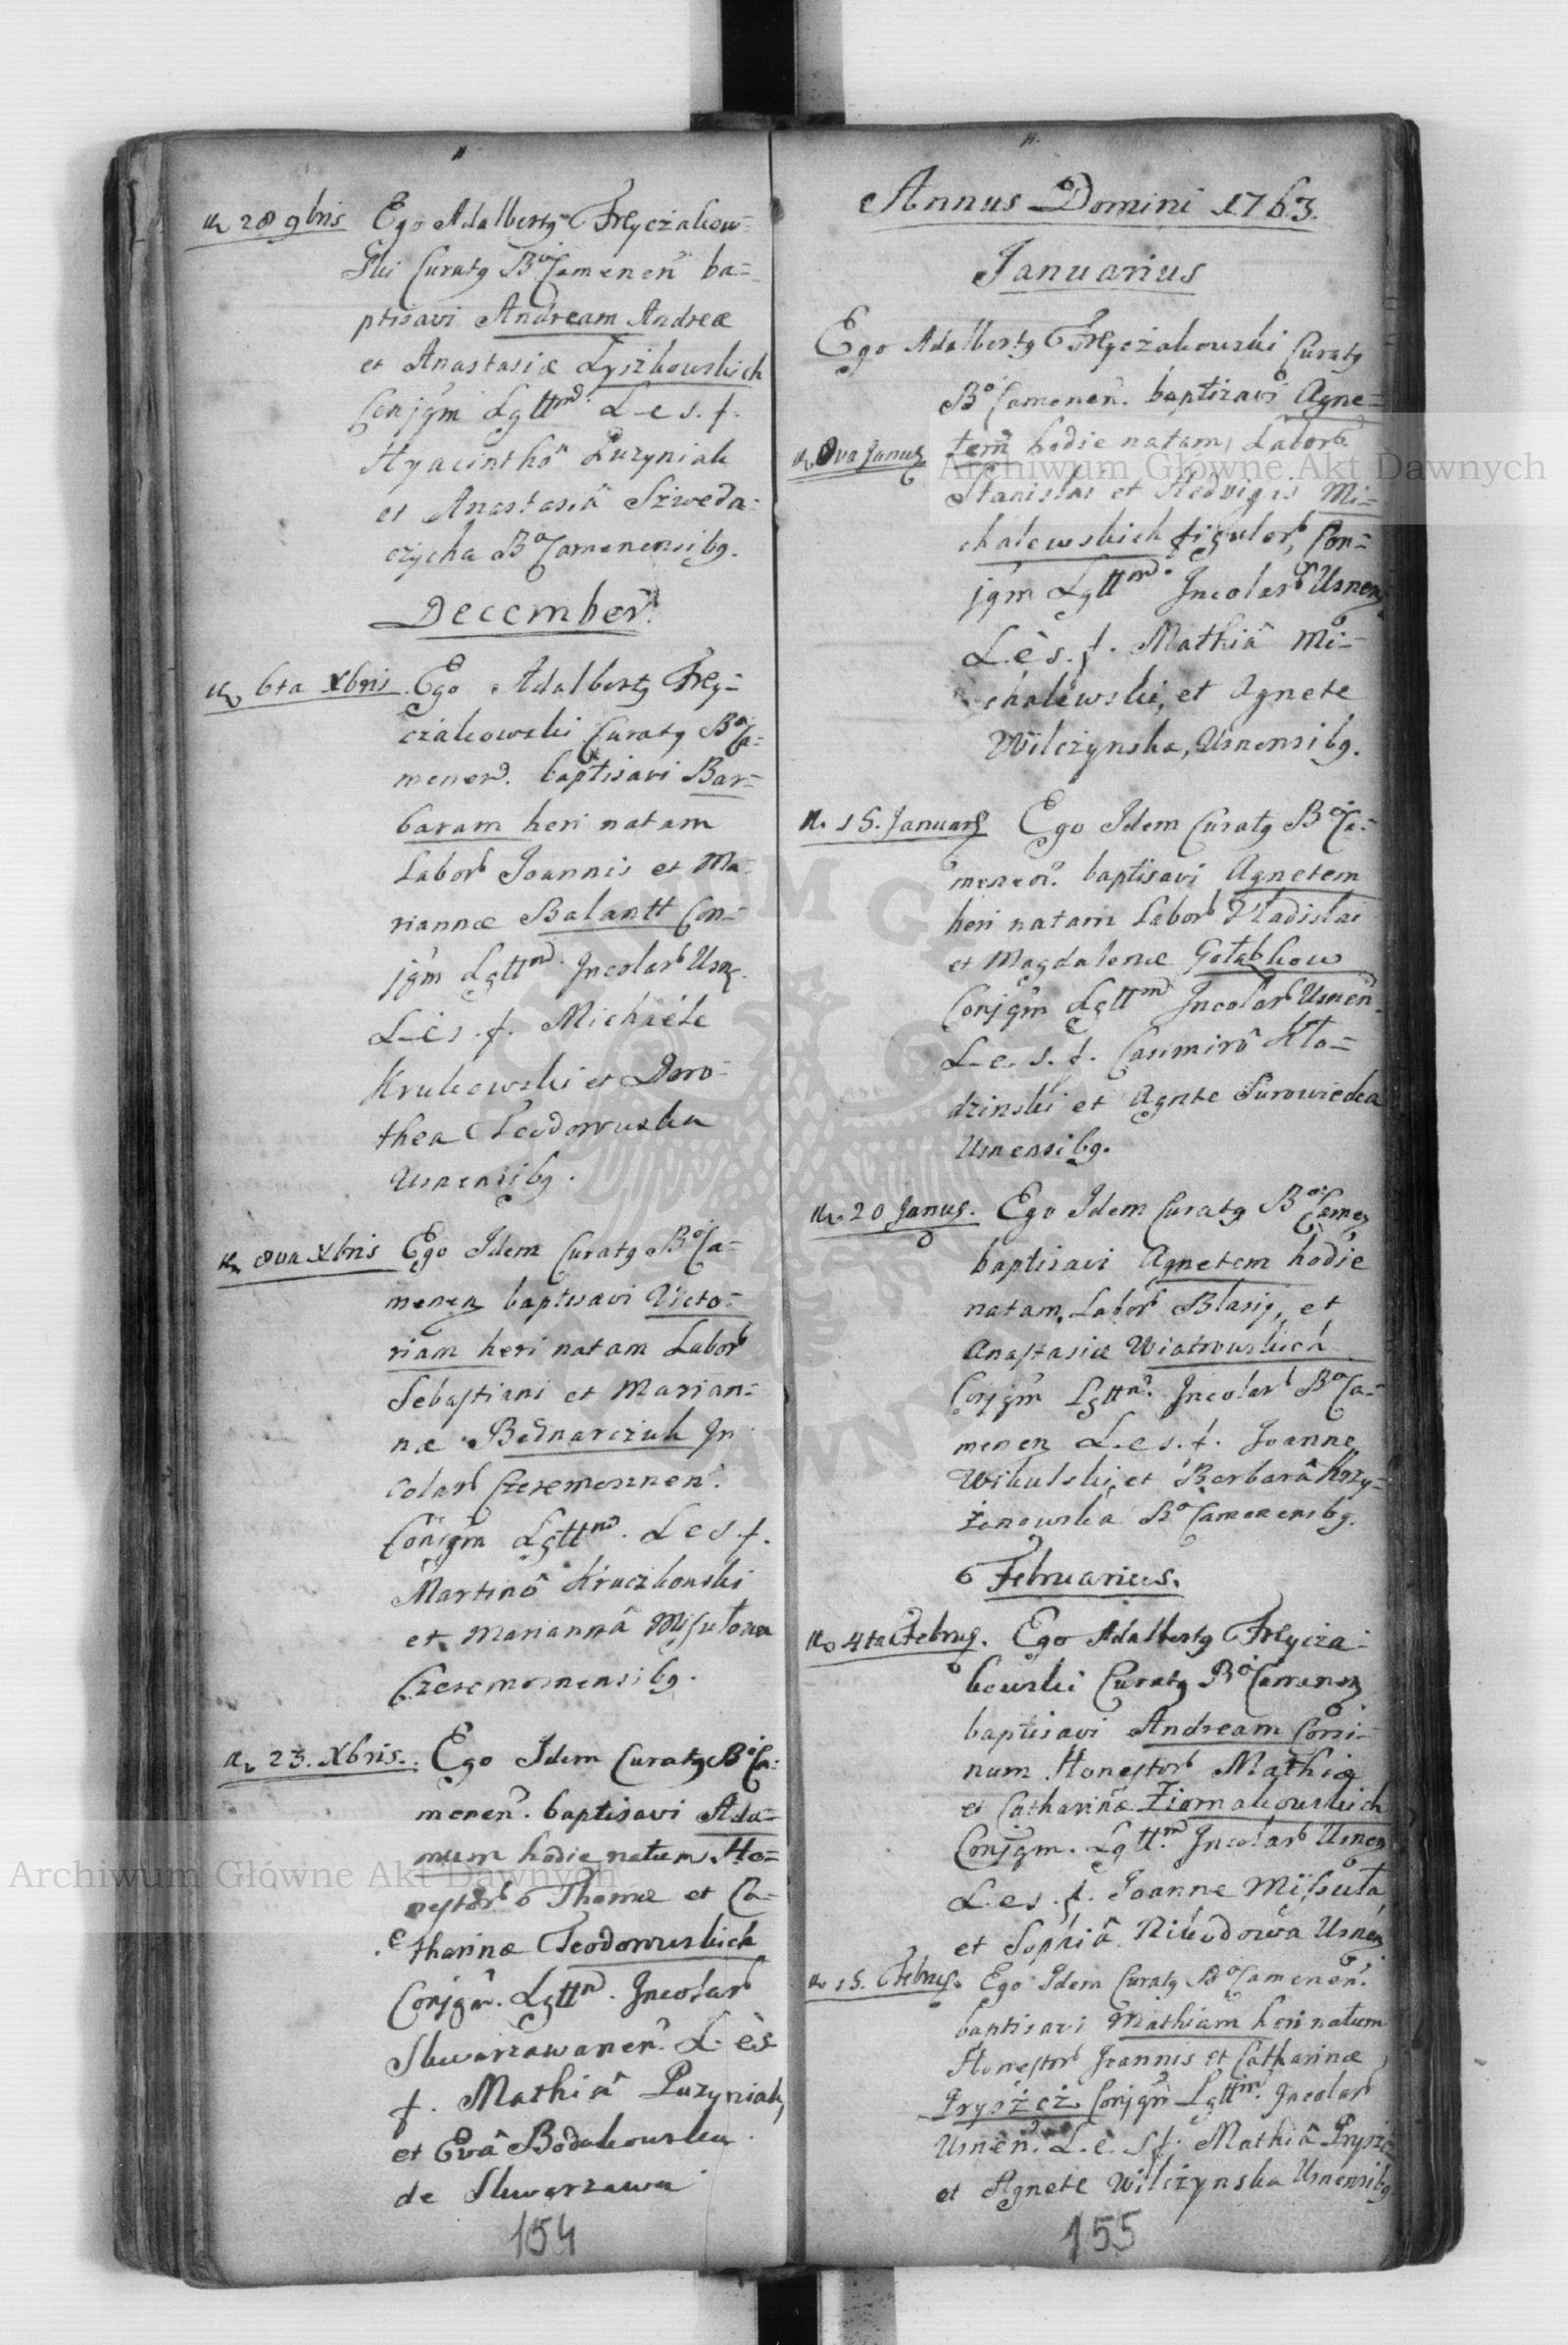 28 9bris Ego Adalbertq Freyczakow=
ski Curatq BoCamenen ba=
ptisavi Andream Andreæ
et Anastasiæ Lyszkowskich
Conjgm Lgttmd. L e s. f.
Hyacinthô Puzyniak
et Anastasiâ Szweda=
czycha BoCamenensibq.
December
6ta Xbris Ego Adalbertq Frey=
czakowski Curatq BoCa=
menend. baptisavi Bar=
baram heri natam
Labor Joannis et Ma=
riannæ Balantt Con=
jgm Lgttmd. Incolar Usn.
L e s. f. Michaele
Krukowski et Doro=
thea Teodorowska
Usnensibq.
8va Xbris Ego Idem Curatq BoCa=
menen baptisavi Victo=
riam heri natam Labor
Sebastiani et Marian=
næ Bednarczuk In
colar Czeremosnen.
Conjgm Lgttmd. L e s f.
Martinô Kruczkowski
et Mariannâ Misutowa
Czeremosnensibq.
23. Xbris. Ego Idem Curatq BoCa=
menen. baptisavi Ada=
mum hodie natum Ho=
nestor Thomæ et Ca=
tharinæ Teodorowskich
Conjgm. Lgttmd. Incolar
Skwarzawanen. L. è s
f. Mathiâ Puzyniak,
et Evâ Bodakowska
de Skwarzawa
154
Annus Domini 1763.
Januarius
Ego Adalbertq Freyczakowski Curatq
BoCamenen. baptisavi Agne=
8va Janua tem hodie natam, Labor
Archiwum Główne Akt Dawnych
Stanislai et Hedvigis Mi=
chalewskich figulor, Con=
jgm Lgttmd. Incolar Usnen
L. è s. f. Mathiâ Mi=
chalewski, et Agnete
Wilczynska, Usnensibq.
15. Januar Ego Idem Curatq BoCa=
menen. baptisavi Agnetem
heri natam Labor Vladislai
et Magdalenæ Gołąbkow
Conjgm Lgttmd Incolar Usnen.
L. e. s. f. Casimirô Kło=
dzinski et Agnete Surowiecka
Usnensibq.
20 Janua. Ego Idem Curatq BoCamen
baptisavi Agnetem hodie
natam, Labor Blasiq, et
Anastasiæ Wiatrowskich
Conjgm Lgttmd. Incolar BoCa=
menen L. e s. f. Joanne
Wikulski, et Barbarâ Krzy=
żanowska BoCamenensibq.
Februarius.
4ta Februa. Ego Adalbertq Freycza=
kowski Curatq BoCamenen
baptisavi Andream Corsi=
num Honestor Mathiæ
et Catharinæ Ziomakowskich
Conjgm. Lgttmd Incolar Usnen
L. e s. f. Joanne Misuta
et Sophiâ Nikodowa Usnen
15. Februa. Ego Idem Curatq BoCamenen.
baptisavi Mathiam heri natum
Honestor Joannis et Catharinæ
Pryszcz Conjgm Lgttmd. Incolar
Usnen. L. e. s f. Mathiâ Pryszcz
et Agnete Wilczynska Usnensibq
155
Archiwum Główne Akt Dawnych